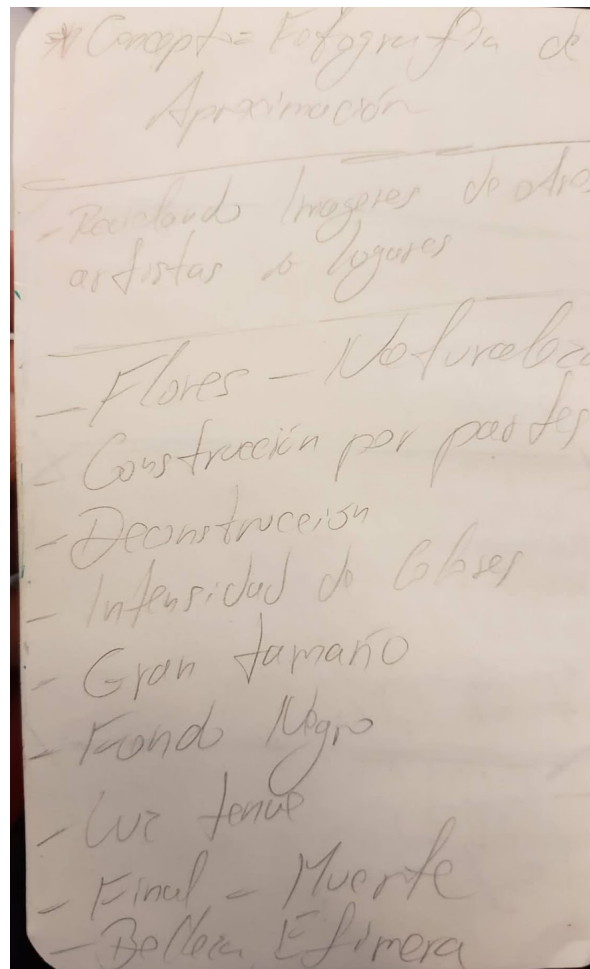 * Concepto = Fotografía de
Aproximación
- Reciclando Imagenes de otros
artistas o lugares
- Flores - Naturaleza
- Construcción por partes
- Deconstrucción
- Intensidad de Colores
- Gran tamaño
- Fondo Negro
- Luz tenue
- Final - Muerte
- Belleza Efímera